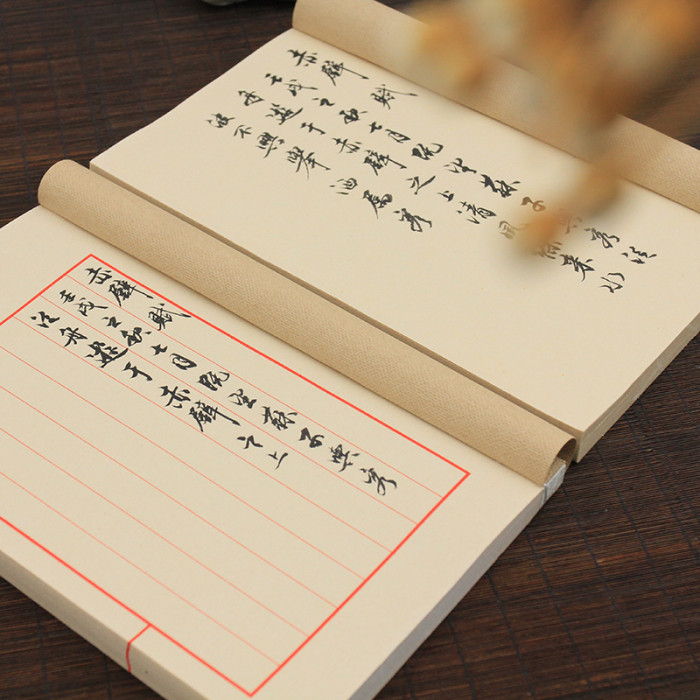 赤壁賦
壬戌之秋七月既望蘇子與客泛
舟遊于赤壁之上清風徐來水
波不興舉酒屬客
赤壁賦
壬戌之秋七月既望蘇子與客
泛舟遊于赤壁之上